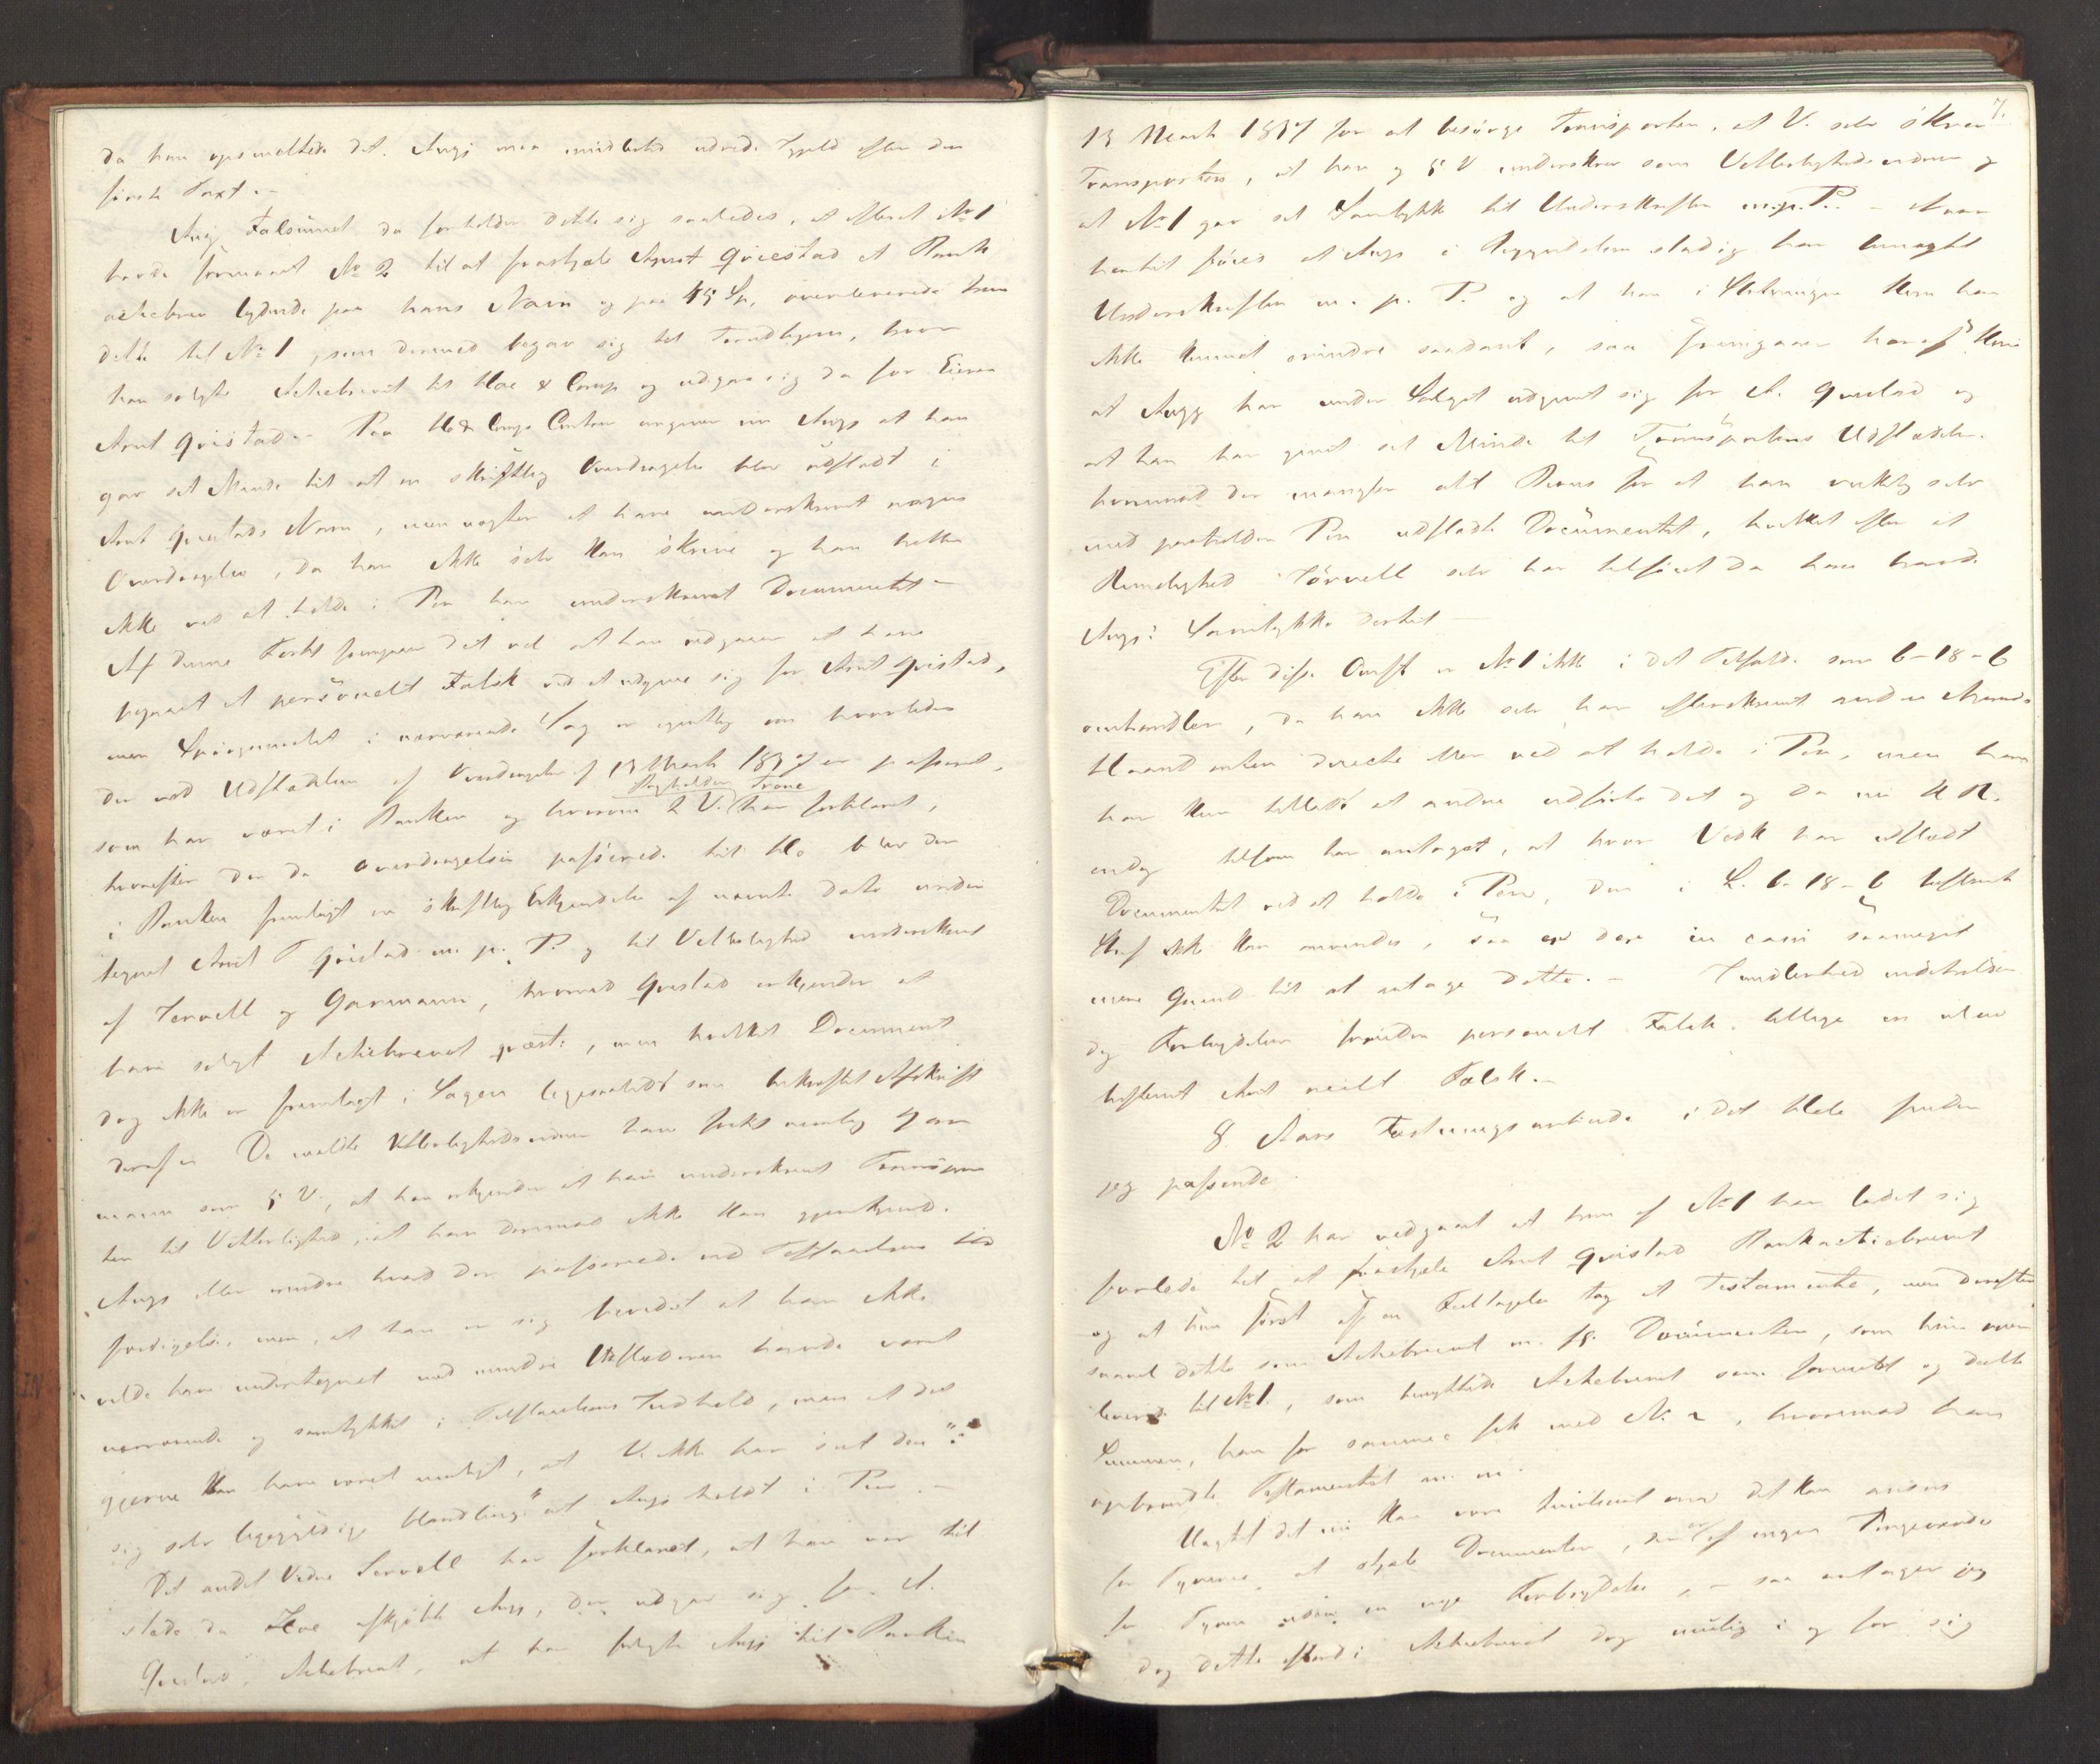 da han opsmeltede det. Angj maa imidlertid udrede Igjeld efter den
første Taxt.–
Ang. Falsünet da forholder dette sig saaledes, at efterat No 1
havde formaaet No 2 til at frastjæle Arnt Qvistad et Bank
actiebrev lydende paa hans Navn og paa 45 Sp, overleverede hun
dette til No 1, som dermed begav sig til Trondhjem, hvor
han solgte Actiebrevet til Hoe & Comp og udgav sig da for Eieren
Arnt Qvistad.– Paa H & Comps Contoir angiver nu Angj at han
gav sit Minde til at en skriftlig Overdragelse blev udstædt i
Arnt Qvistads Navn, men negter at have underskrevet nogen
Overdragelse, da han ikke selv kan skrive og han heller
ikke ved at holde i Pen har underskrevet Documentet –
Af denne Forkl fremgaaer det vel at han vedgaaer at have
begaaet et personelt Falsk ved at udgive sig for Arnt Qvistad,
men Spørgsmaalet i nærværende Sag er egentlig om hvorledes
der ved Udstædelsen af Overdragelse af 13 Marts 1837 er passeret,
Bogholder Trane
som har været i Banken og hvorom 2 V. har forklaret,
hvorefter der da overdragelsen passerede til H. blev der
i Banken fremlagt en skriftlig Erkjendelse af nævnte Dato under
tegnet Arnt T Qvistad m. p. P. og til Vitterlighed underskrevet
af Sorvell og Garmann, hvorved Qvistad erkjender at
have solgt Actiebrevet qvæst:, men hvilket Document
dog ikke er fremlagt i Sagen ligesaalidt som bekræftet Afskrift
deraf. De meldte Vitterlighedsvidner have forkl nemlig Gar
mann som 5 V., at han erkjender at have underskrevet Transpor
ten til Vitterlighed, at han derimod ikke kan gjenkjende
Angj eller erindre hvad der passerede ved Udstædelsen
færdigelse, men, at han er sig bevidst at han ikke
vilde have undertegnet ved mindre Udstæderen havde været
nærværende og samtykket i Indhold, men at det
gjerne kan have været muligt, at V. ikke har seet den "i
sig selv ligegyldige Handling" at Angj holdt i Pen.–
Det andet Vidne Sorvell har forklaret, at han var til
stede da Hoe afkjøbte Angj, der udgav sig for A.
Qvistad, Actiebrevet, at han fulgte Angj til Banken
7.
13 Marts 1837 for at besørge Transporten, at V. selv skrev
Transporten, at han og 5 V underskrev som Vitterlighedsvidner og
at No 1 gav sit Samtykke til Underskriften m. p. P. – Naar
hertil føies at Angj i Begyndelsen stadig har benægtet
Underskriften m. p. P. og at han i Slutningen kun har
ikke kunnet erindre saadant, saa fremgaaer heraf kun
at Angj har under Salget udgivet sig for A. Qvistad og
at han har givet sit Minde til Transportens Udstædelse
hvorimod der mangler alt Beviis for at han virkelig selv
med paaholden Pen udstædte Documentet, hvilket efter al
Rimelighed Sorvell selv har tilføiet da han havde
Angjs Samtykke dertil –
Efter disse Omst er No 1 ikke i det Tilfælde som 6–18–6
omhandler, da han ikke selv har efterskrevet anden Mands
Haand enten directe eller ved at holde i Pen, men han
har kun tilladt at andre udførte det og da nu H R.
endog har antaget, at hvor Vedk har udstædt
Documentet ved at holde i Pen, den i L. 6–18–6 bestemte
Straf ikke kan anvendes, saa er der in casu saameget
mere Grund til at antage dette.– Imidlertid indeholder
dog Forbrydelsen foruden personelt Falsk tillige en
bestemt Art reelt Falsk.–
8 Aars Fæstningsarbeide i det Hele finder
jeg passende.
No 2 har vedgaaet at hun af No 1 har ladet sig
forlede til at frastjæle Arnt Qvistad Bankactiebrevet
og at hun først af en Feiltagelse tog et Testamente, men derefter
saavel dette som Actiebrevet m. fl. Documenter, som hun over
leverede til No 1., som benyttede Actiebrevet som formeldt og deelte
Summen, han for samme fik med No 2, hvorimod han
opbrændte Testamentet m. m.
Uagtet det nu kan være tvivlsomt om det kan ansees
for Tyverie at stjæle Documenter, der er af ingen Pengeværdi
for Tyven uden en nye Forbrydelse, – saa antager jeg
dog dette efterdi Actiebrevet dog muelig i og for sig